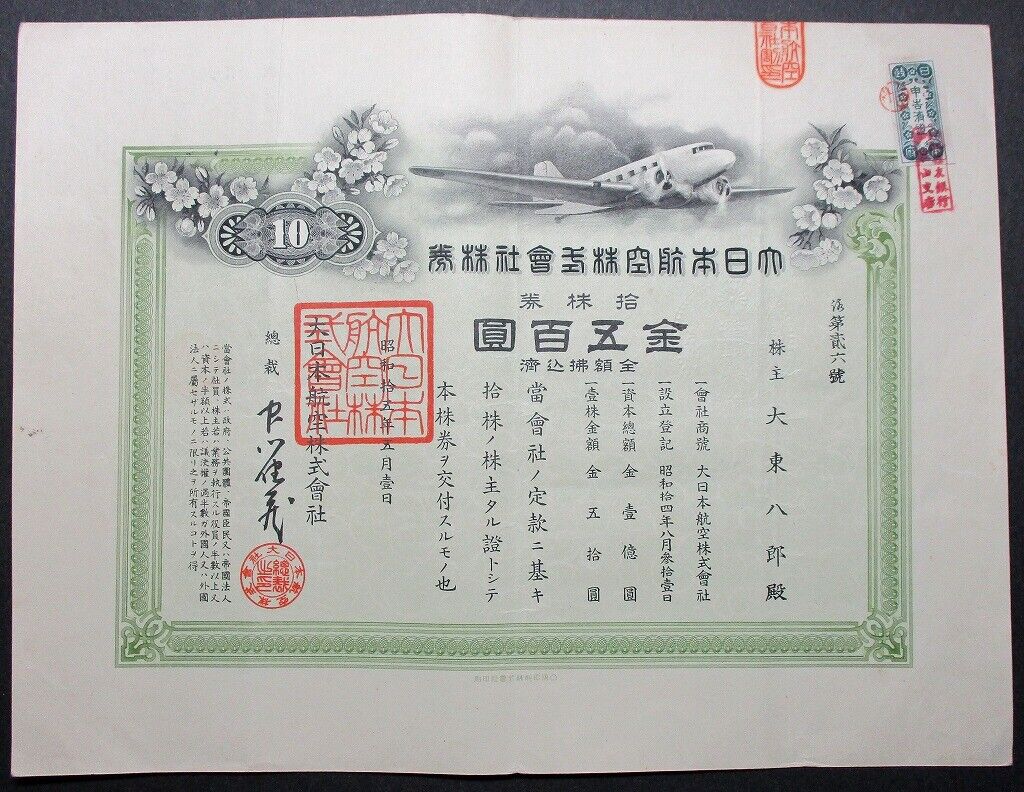 10
大日本航空株式會社株券
拾株券
金五百圓
全額拂込濟
第貳六號
株主 大東八郎殿
一會社商號 大日本航空株式會社
一設立登記 昭和拾四年八月參拾壹日
一資本總額 金壹億圓
一壹株金額 金五拾圓
當會社ノ定款ニ基キ
拾株ノ株主タル證トシテ
本株券ヲ交付スルモノ也
昭和拾五年五月壹日
大日本航空株式會社
大日本
航空株
式會社
總裁
大日本航空株式會社
總裁之印
當會社ノ株式ハ政府、公共團體、帝國臣民又ハ帝國法人
ニシテ社員、株主若ハ業務ヲ執行スル役員ノ半數以上又
ハ資本ノ半額以上若ハ議決權ノ過半數ガ外國人又ハ外國
法人ニ屬セザルモノニ限リ之ヲ所有スルコトヲ得